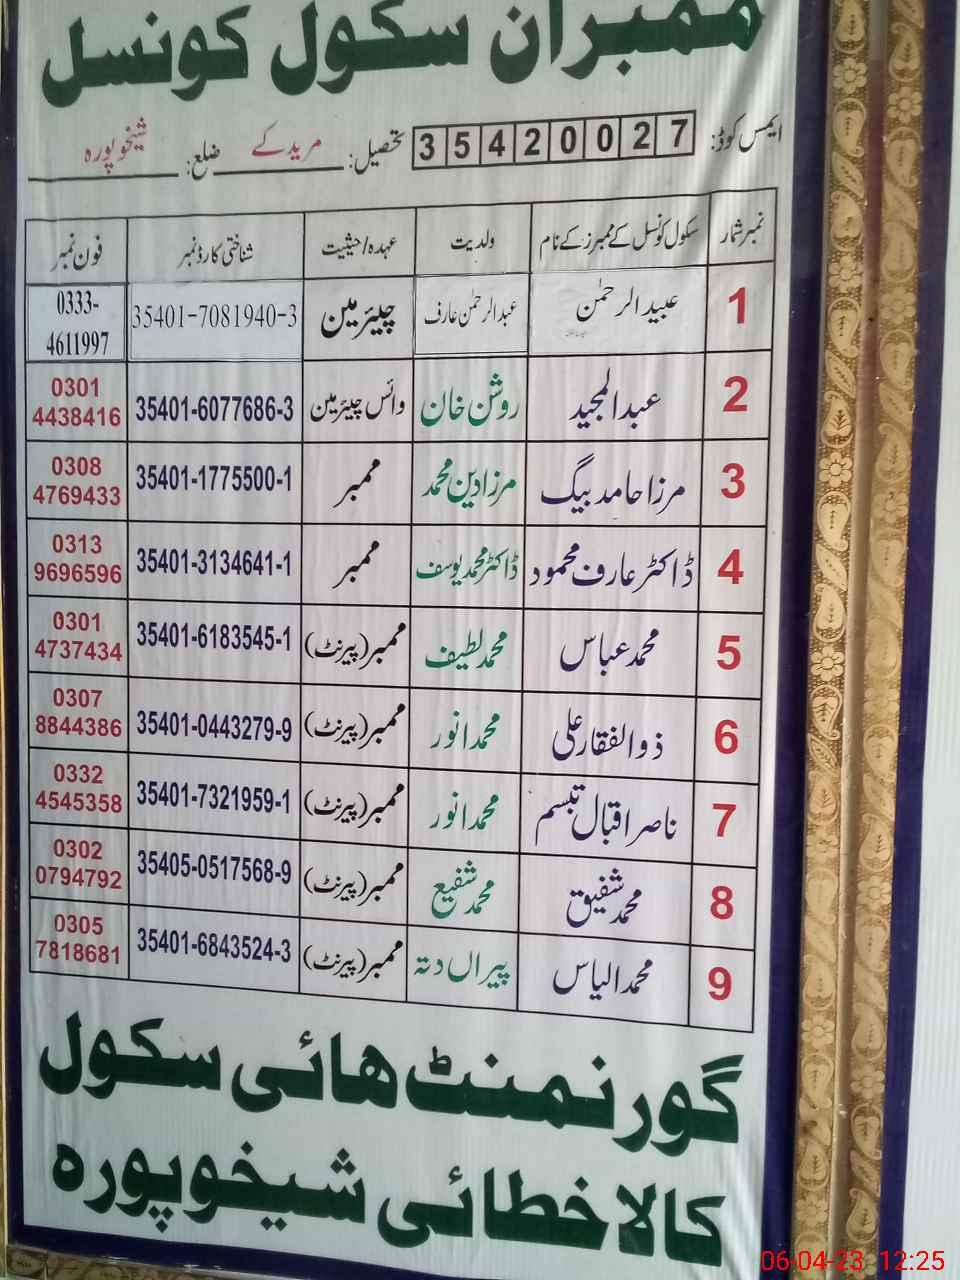 ممبران سکول کونسل
ایمس کوڈ: 35420027 تحصیل: مریدکے ضلع: شیخوپورہ
نمبر شمار سکول کونسل کے ممبرز کے نام ولدیت عہدہ/حیثیت شناختی کارڈ نمبر فون نمبر
1 عبید الرحمٰن عبدالرحمٰن عارف چیئرمین 35401-7081940-3 0333-4611997
2 عبدالمجید روشن خان وائس چیئرمین 35401-6077686-3 0301 4438416
3 مرزا حامد بیگ مرزا دین محمد ممبر 35401-1775500-1 0308 4769433
4 ڈاکٹر عارف محمود ڈاکٹر محمد یوسف ممبر 35401-3134641-1 0313 9696596
5 محمد عباس محمد لطیف ممبر (پیرنٹ) 35401-6183545-1 0301 4737434
6 ذوالفقار علی محمد انور ممبر (پیرنٹ) 35401-0443279-9 0307 8844386
7 ناصر اقبال تبسم محمد انور ممبر (پیرنٹ) 35401-7321959-1 0332 4545358
8 محمد شفیق محمد شفیع ممبر (پیرنٹ) 35405-0517568-9 0302 0794792
9 محمد الیاس پیراں دتہ ممبر (پیرنٹ) 35401-6843524-3 0305 7818681
گورنمنٹ ھائی سکول
کالا خطائی شیخوپورہ
06-04-23 12:25